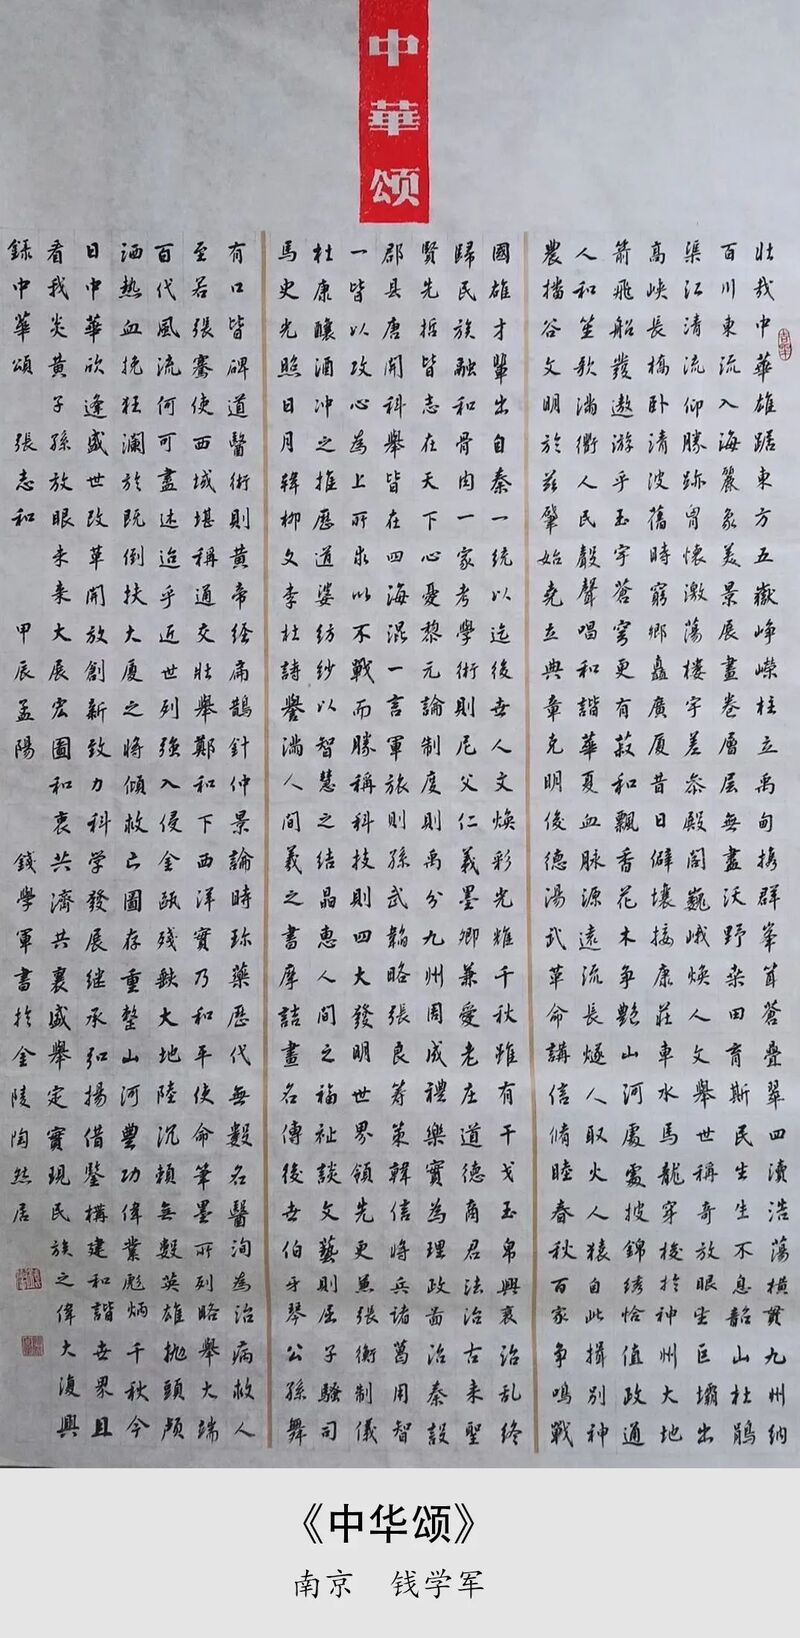 中華頌
壯哉中華雄踞東方五嶽峥嵘柱立禹甸攜群峯聳蒼疊翠四瀆浩蕩橫貫九州納
百川東流入海麗象美景展畫卷層层無盡沃野桑田育斯民生生不息韶山杜鵑
渠江清流仰勝跡胷懷激蕩樓宇差參殿閣巍峨焕人文舉世稱奇放眼望巨壩出
高峽長橋卧清波舊時窮鄉矗廣厦昔日僻壤接康莊車水馬龍穿梭於神州大地
箭飛船發遨游乎玉宇蒼穹更有菽和飄香花木争艷山河處處披錦綉恰值政通
人和笙歌滿衢人民聲聲唱和諧華夏血脉源遠流長燧人取火人猿自此揖别神
農播谷文明於兹肇始堯立典章克明俊德湯武革命講信脩睦春秋百家争鳴戰
國雄才輩出自秦一統以迄後世人文焕彩光耀千秋雖有干戈玉帛興衰治乱终
歸民族融和骨肉一家考學術則尼父仁義墨卿兼愛老庄道德商君法治古来聖
賢先哲皆志在天下心憂黎元論制度則禹分九州周成禮樂實為理政啚治秦設
郡县唐開科舉皆在四海混一言軍旅則孫武韜略張良筹策韓信將兵諸葛用智
一皆以攻心為上所求以不戰而勝稱科技則四大發明世界領先更兼張衡制儀
杜康釀酒冲之推歷道婆紡紗以智慧之结晶惠人間之福祉談文藝則屈子騷司
馬史光照日月韓柳文李杜詩譽滿人間羲之書摩詰畫名傳後世伯牙琴公孫舞
有口皆碑道醫術則黄帝经扁鵲針仲景論時珍藥歷代無數名醫洵為治病救人
至若張騫使西域堪稱通交壯舉鄭和下西洋實乃和平使命筆墨所列略舉大端
百代風流何可盡述迨乎近世列强入侵金甌殘缺大地陸沉賴無數英雄抛頭颅
洒熱血挽狂瀾於既倒扶大厦之將傾救亡圖存重整山河豐功偉業彪炳千秋今
日中華欣逢盛世改革開放創新致力科学發展继承弘揚借鑒構建和諧世界且
看我炎黄子孫放眼未来大展宏圖和衷共濟共襄盛舉定實現民族之偉大復興
録中華頌 張志和 甲辰孟陽 錢學軍書於金陵陶然居
《中华颂》
南京 钱学军